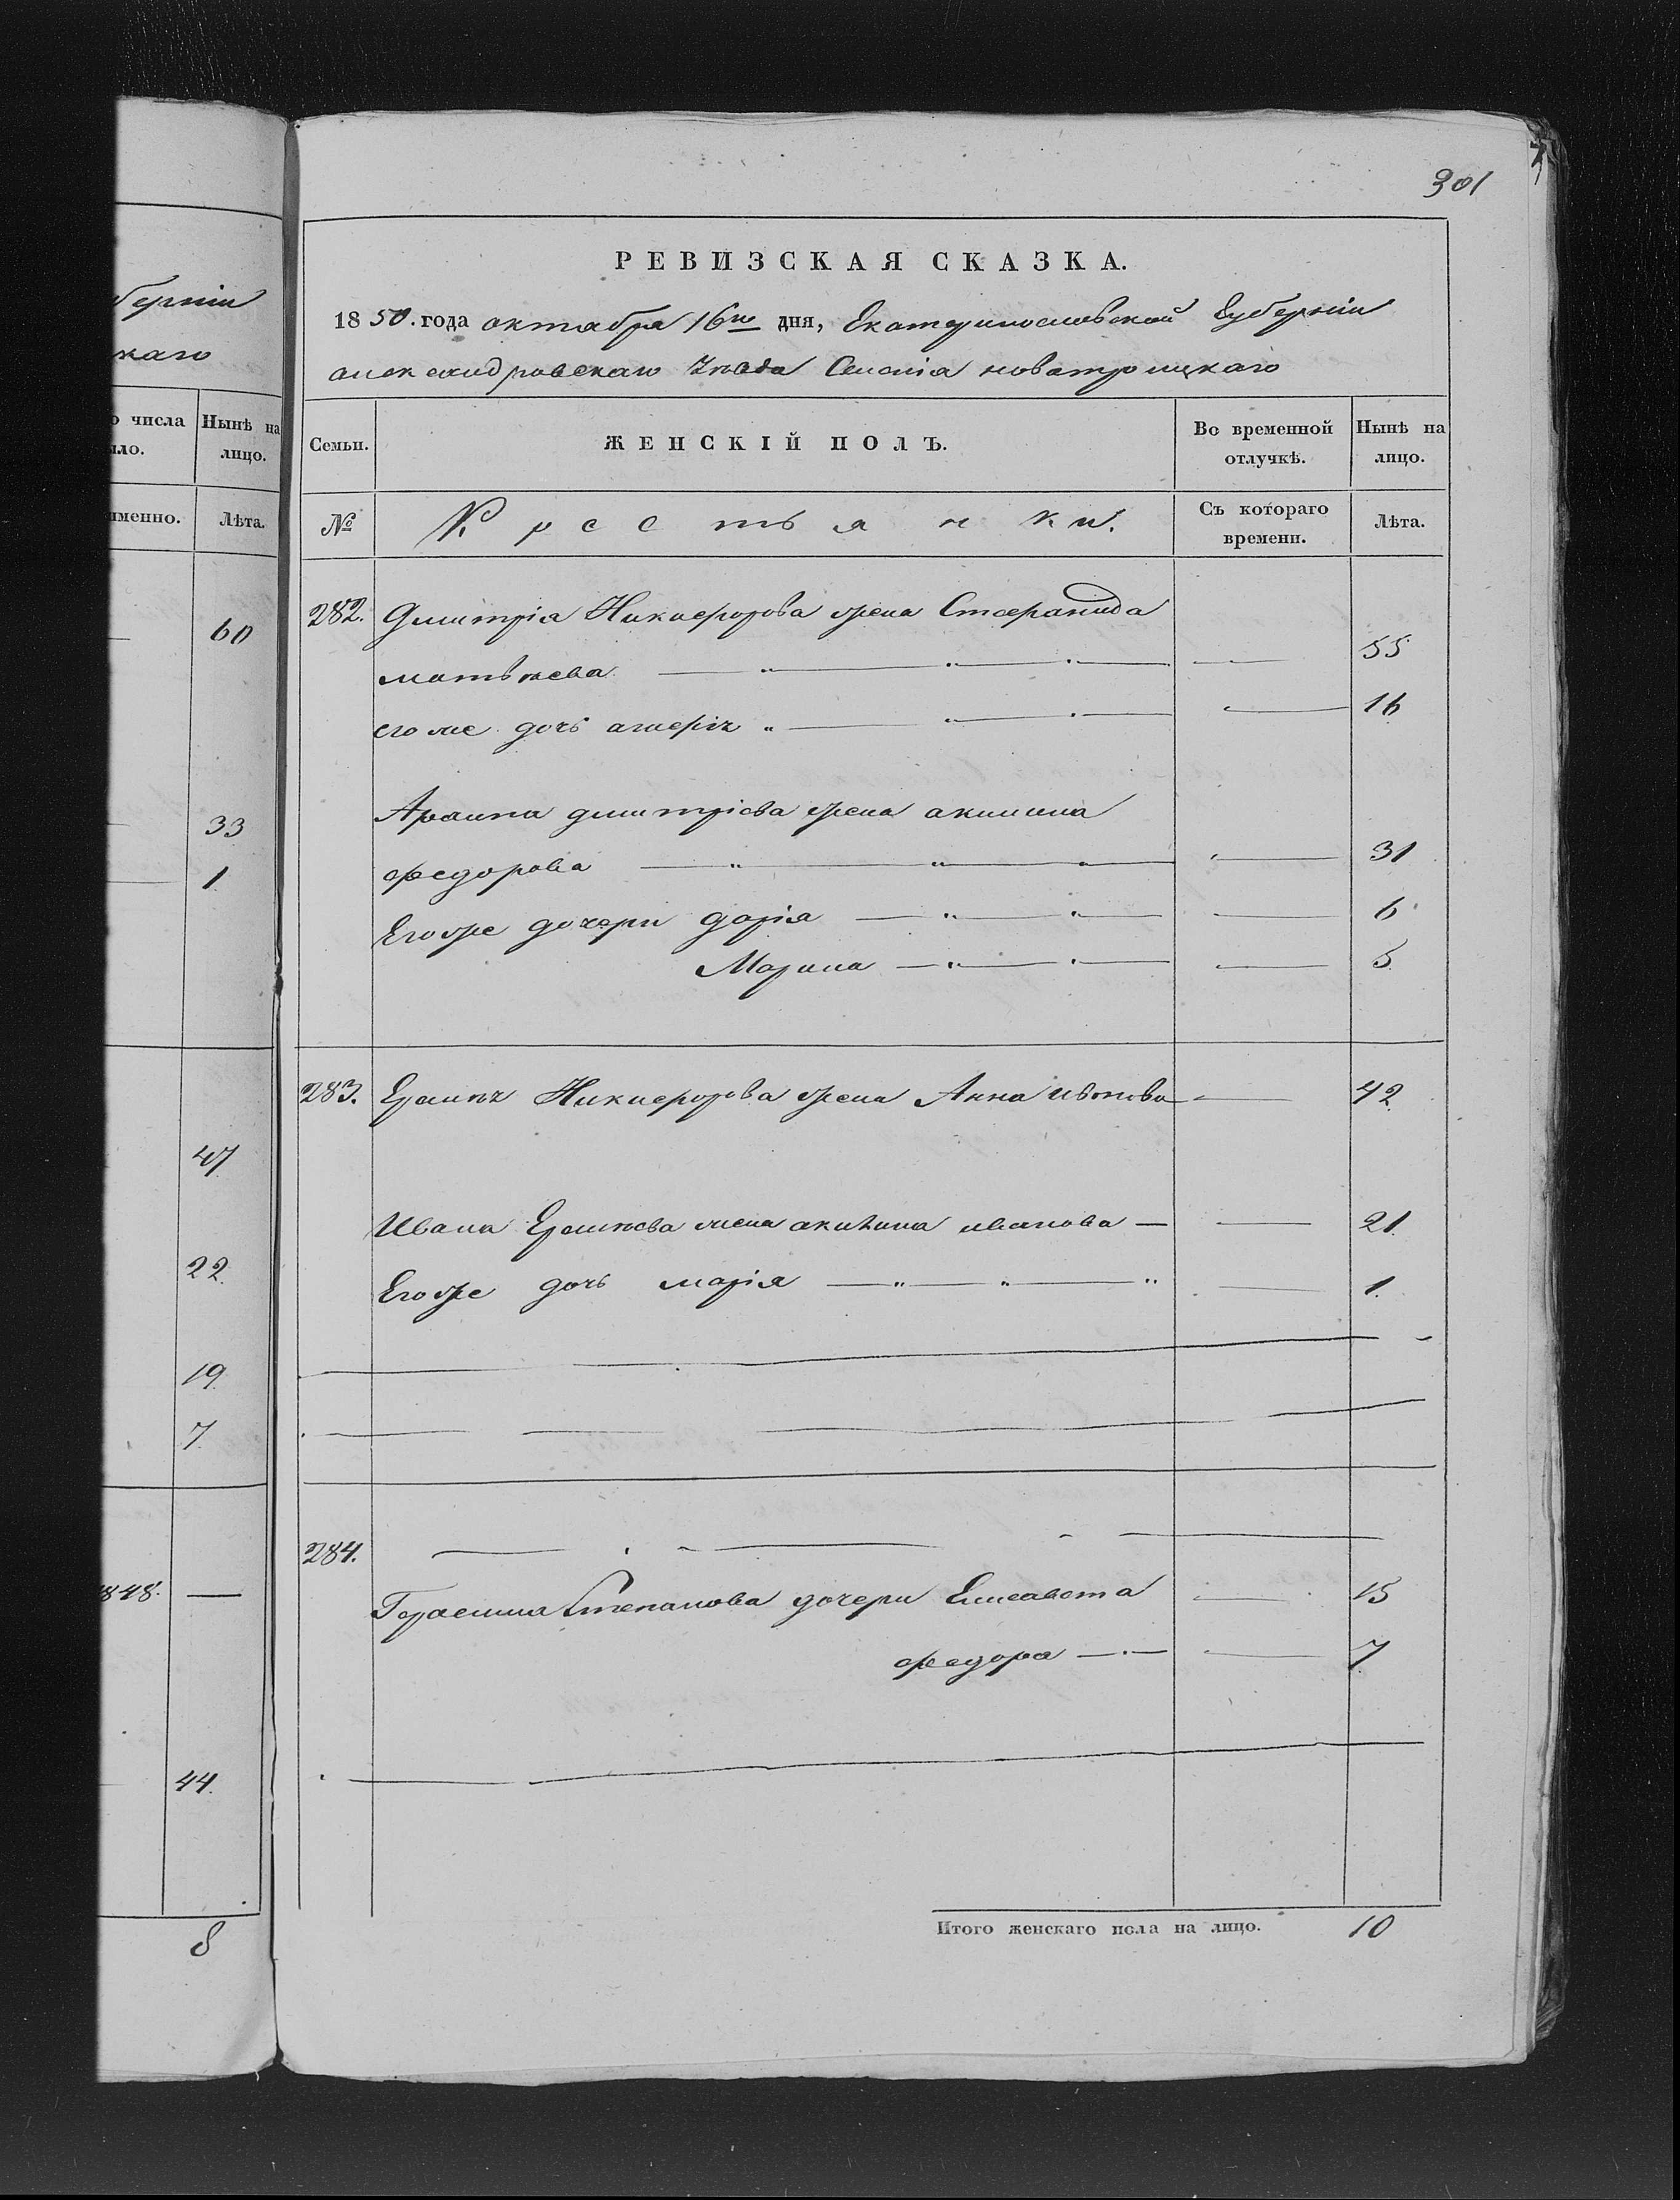 301
РЕВИЗСКАЯ СКАЗКА.
1850. года октября 16го дня, Екатеринославской Губерніи
александровскаго уезда Селенія новотроицкаго
Семьи.
ЖЕНСКІЙ ПОЛЪ.
Во временной отлучкѣ.
Нынѣ на лицо.
№
Крестьянки.
Съ котораго времени.
Лѣта.
282. Димитрія Никифорова жена Стефанида
матвѣева 55
его же дочь 16
димитріева жена акилина
федорова 31
Егоже дочери дарія 6
Марина 5
283. Никифорова жена Анна ивонова 42
Ивана жена акилина иванова 21
Егоже дочь марія 1
284.
Герасима Степанова дочери Елисавета 15
федора 7
Итого женскаго пола на лицо. 10
берніи
каго
о числа
ыло.
Нынѣ на
лицо.
именно.
Лѣта.
60
33
1
47
22
19
7
848.
44
8